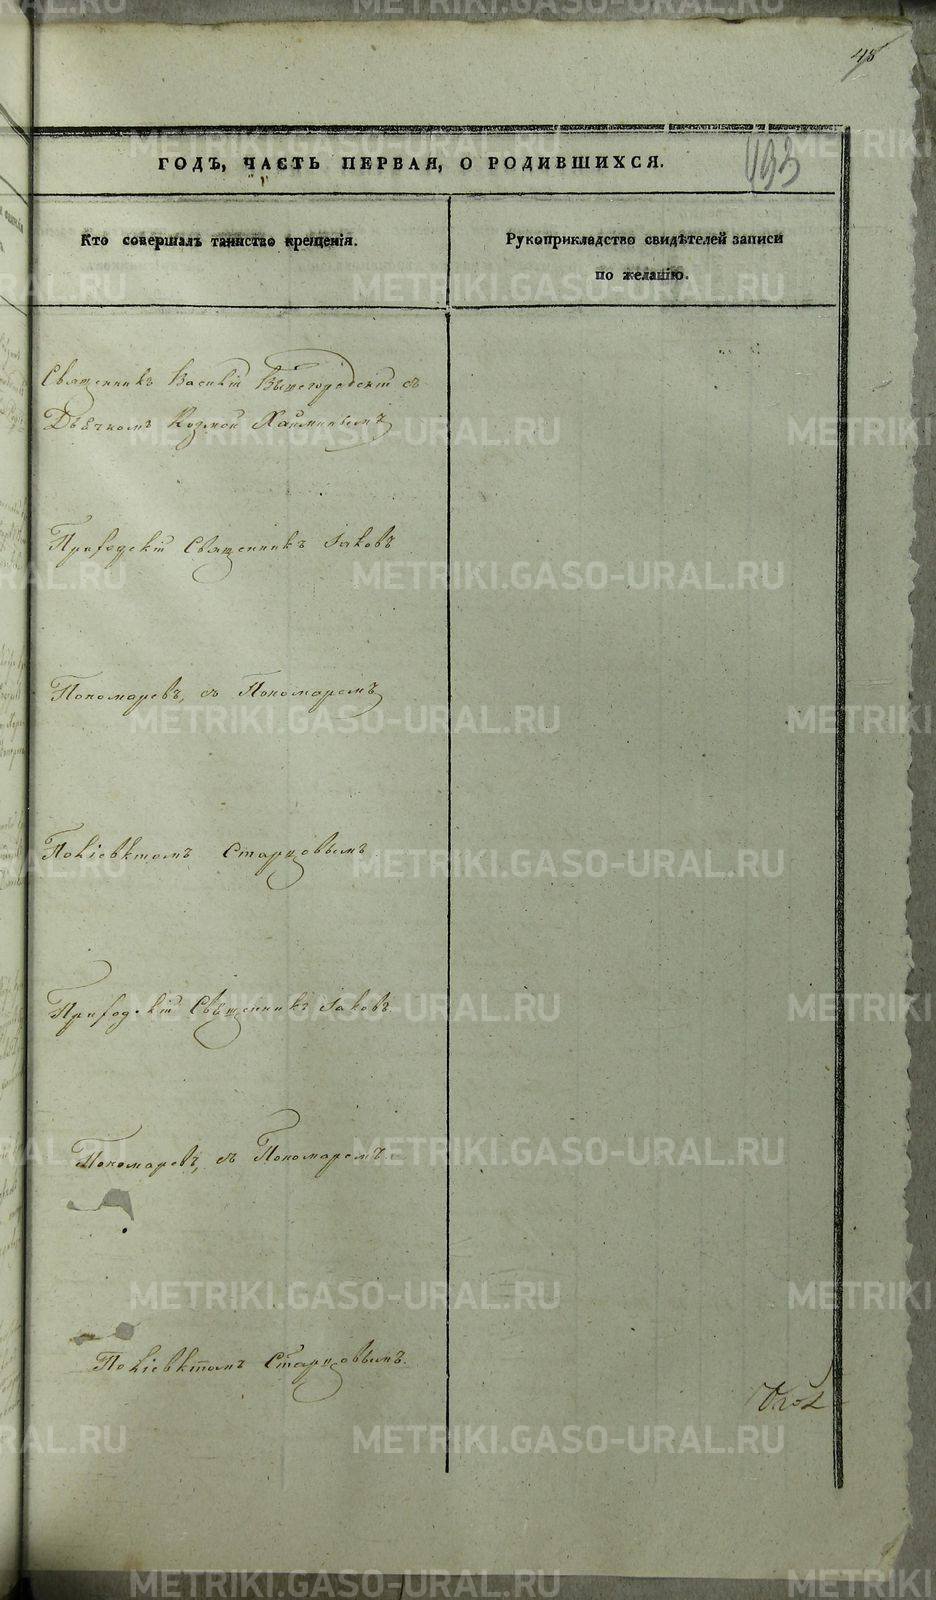 48
193
ГОДЪ, ЧАСТЬ ПЕРВАЯ, О РОДИВШИХСЯ.
Кто совершалъ таинство крещенія.
Рукоприкладство свидѣтелей записи
по желанію.
Священникъ Василій Вышегородскій съ
Дьячкомъ Козмой
Приходскій Священникъ Іаковъ
Пономаревъ, съ Пономаремъ
Поліевктомъ Старцовымъ
Приходскій Священникъ Іаковъ
Пономаревъ, съ Пономаремъ
Поліевктомъ Старцовымъ.
METRIKI.GASO-URAL.RU